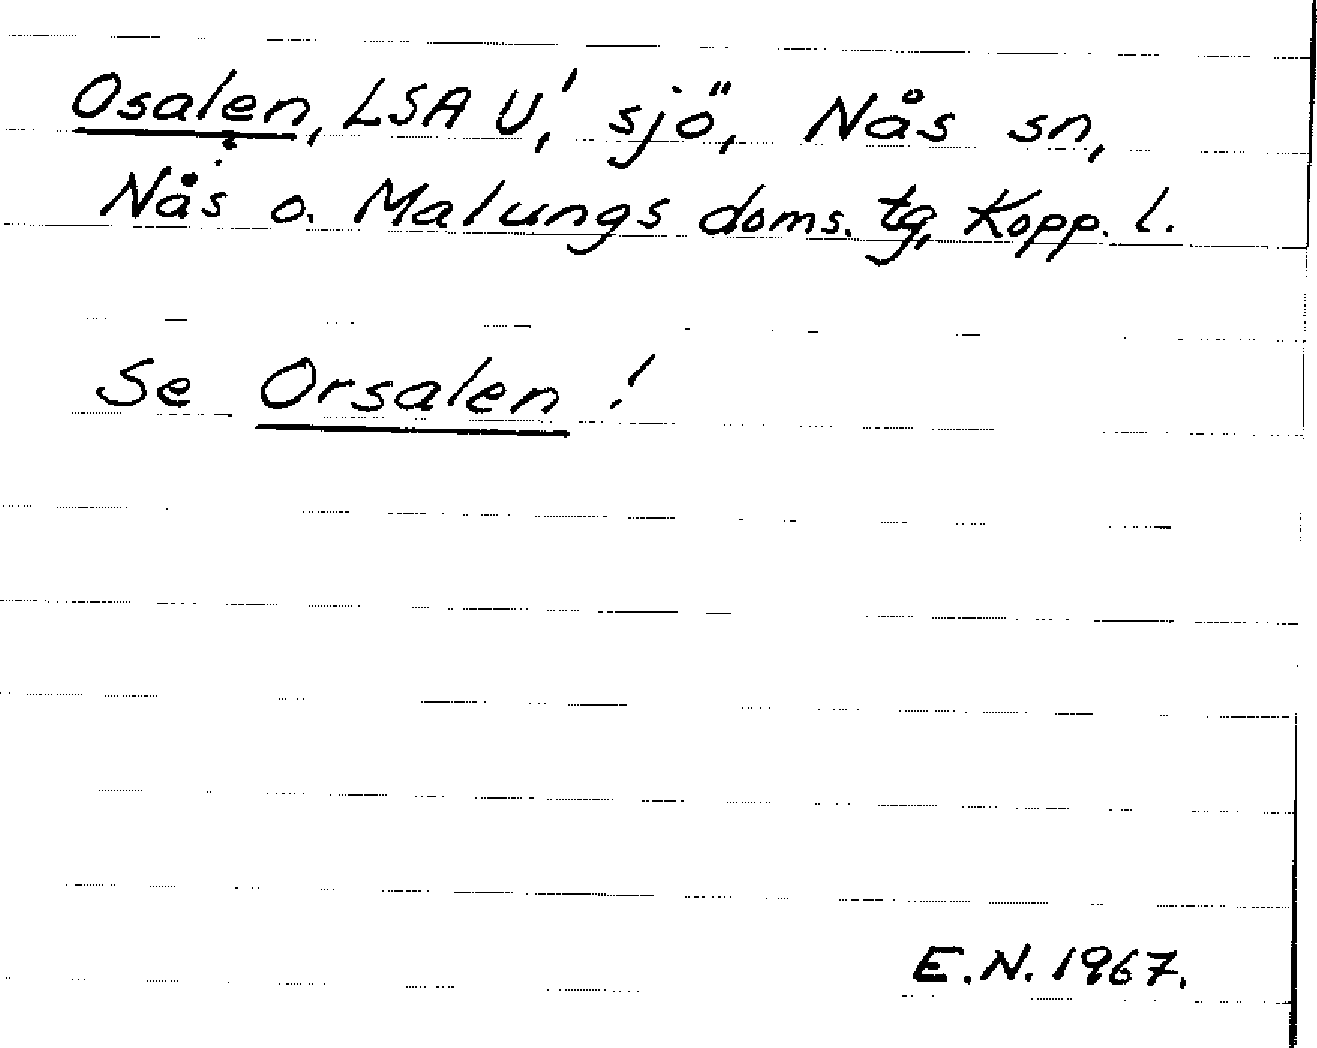 Osalen, LSA U', sjö, Nås sn,
Nås o. Malungs doms. tg, Kopp. l.
Se Orsalen!
E.N. 1967.